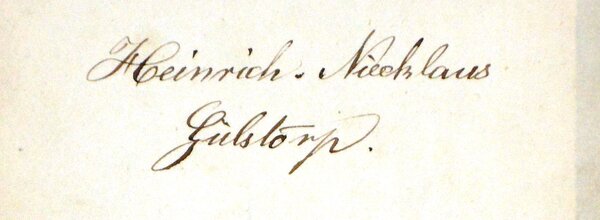 Heinrich. Niecklaus
Gülstorp.